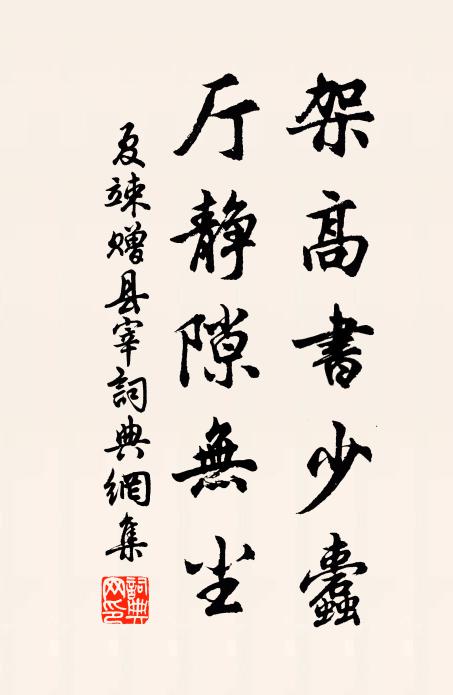 架高書少蠹
厅静隙無尘
夏竦赠县宰詞典網集
詞典網印